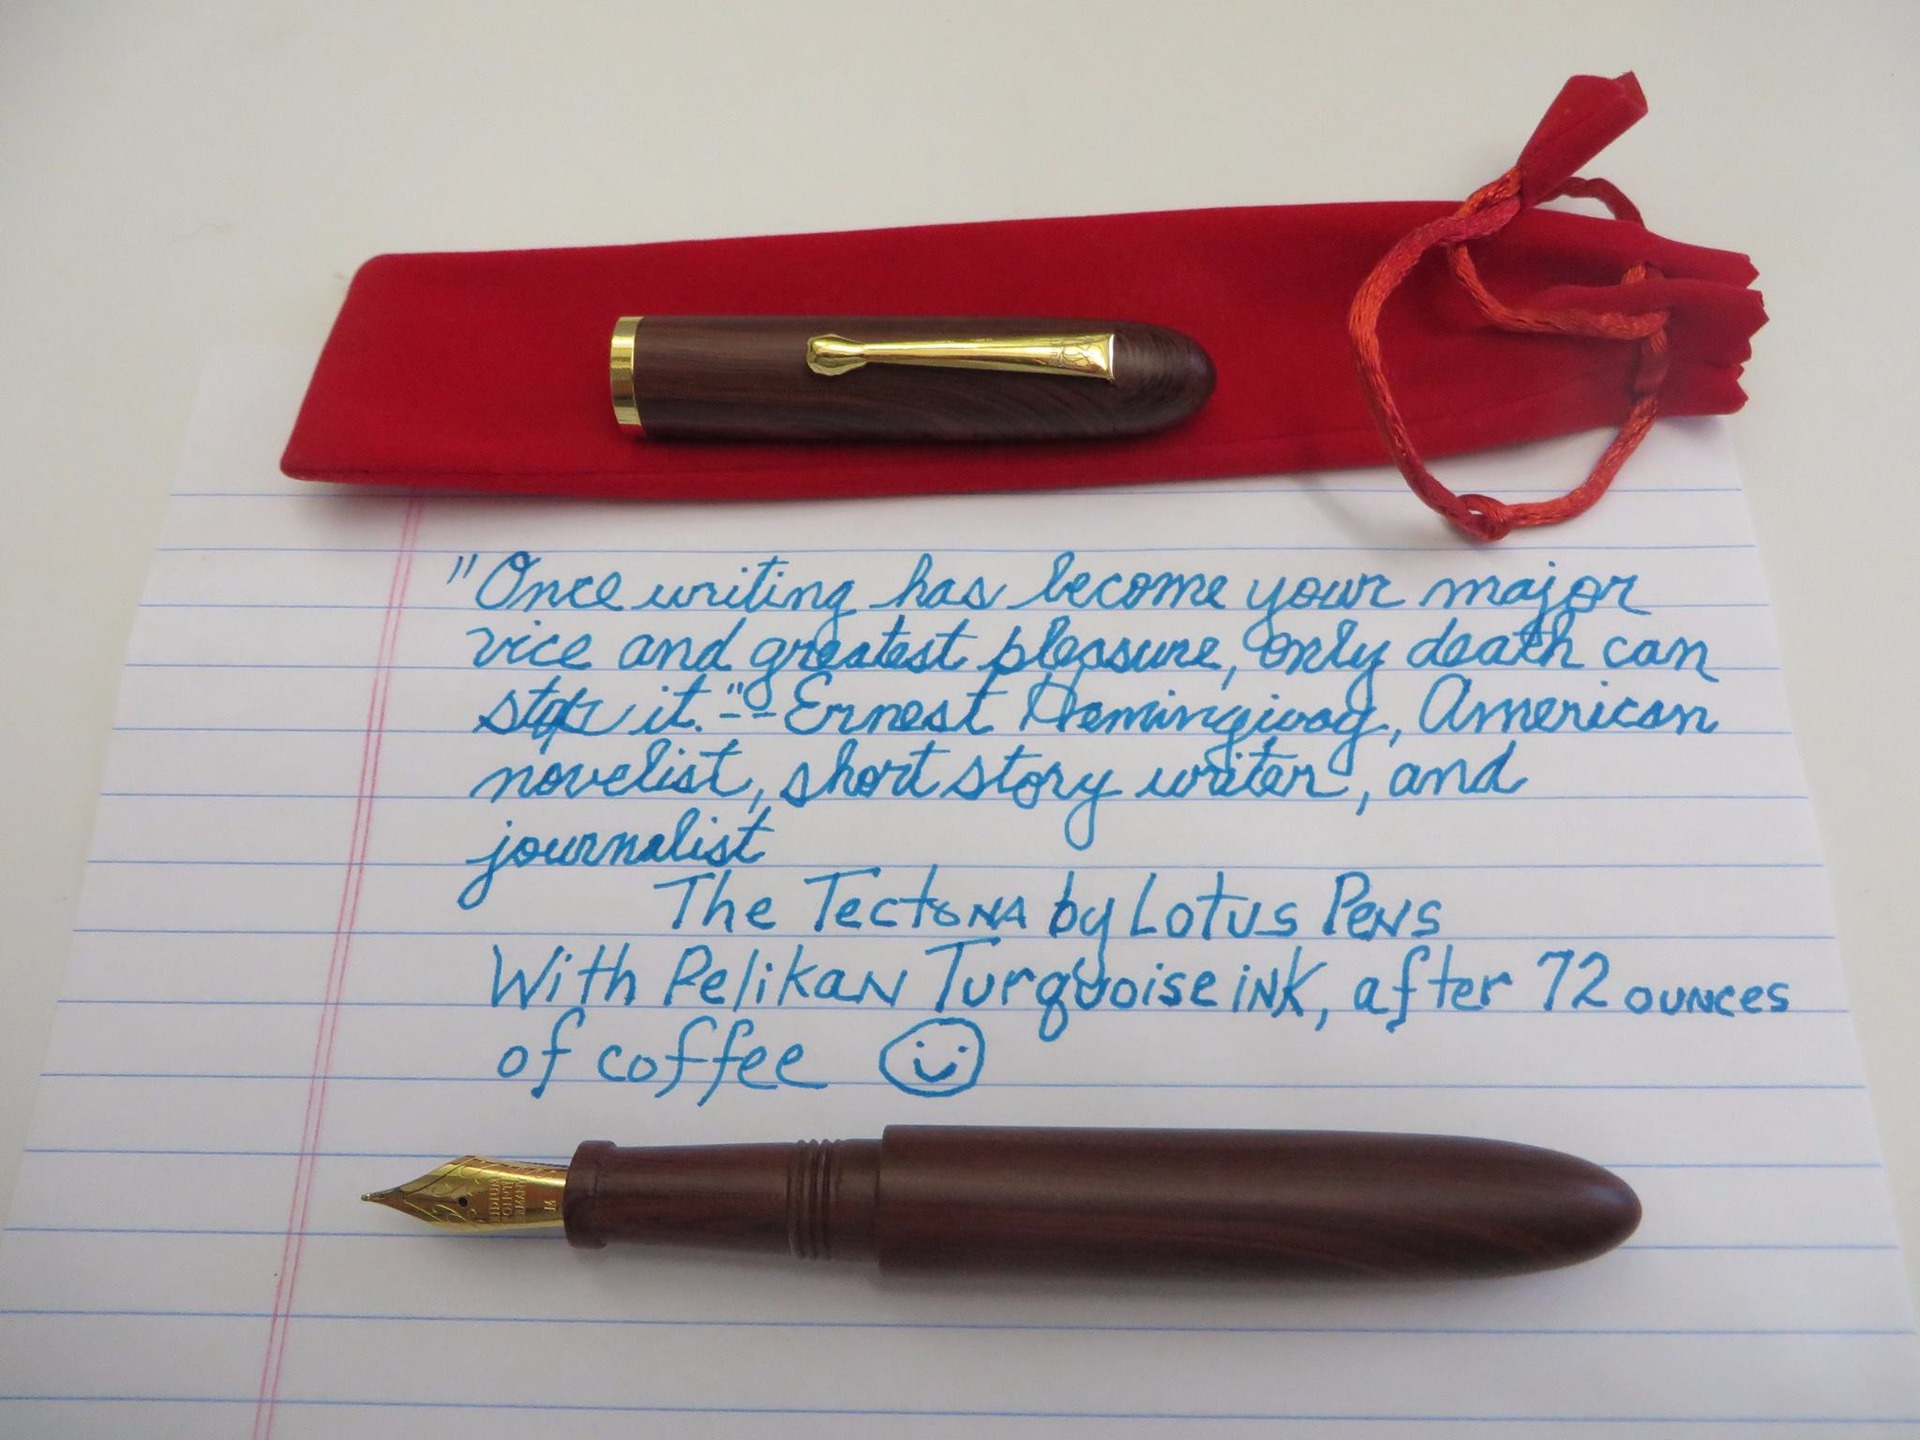 "Once writing has become your major
vice and greatest pleasure, only death can
stop it."--Ernest Hemingway, American
novelist, short story writer, and
journalist
The Tectona by Lotus Pens
With Pelikan Turquoise ink, after 72 ounces
of coffee
M